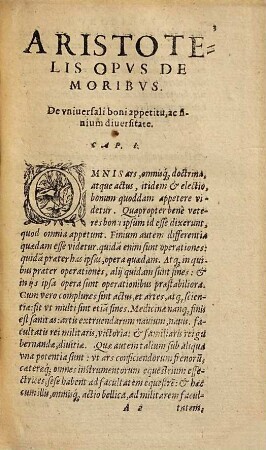 3
ARISTOTE-
LIS OPVS DE
MORIBVS.
De vniuersali boni appetitu, ac fi-
nium diuersitate.
CAP. I.
OMNIS ars, omniúq; doctrina,
atque actus, itidem & electio,
bonum quoddam appetere vi
detur. Quapropter benè vete
res bonũ ipsum id esse dixerunt,
quod omnia appetunt. Finium autem differentia
quædam esse videtur. quidã enim sunt operationes:
quidã prater has ipsas, opera quædam. Atq; in qui-
bus prater operationes, alij quidam sunt fines: &
in ijs ipsa opera sunt operationibus præstabiliora.
Cum vero complures sint actus, et artes, atq; scien-
tiæ: fit vt multi sint etiã fines. Medicinæ nanq; finis
est sanitas: artis extruendarum nauium, nauis: facul-
tatis rei militaris, victoria: & familiaris rei gu-
bernandæ, diuitiæ. Quæ autem talium sub aliqua
vna potentia sunt: vt ars conficiendorum frenorũ,
cæteræq; omnes instrumentorum equestrium effe-
ctrices sese habent ad facultatem equestrẽ: & hæc
cum illis, omnisq; actio bellica, ad militarem facul-
A 2 tatem,